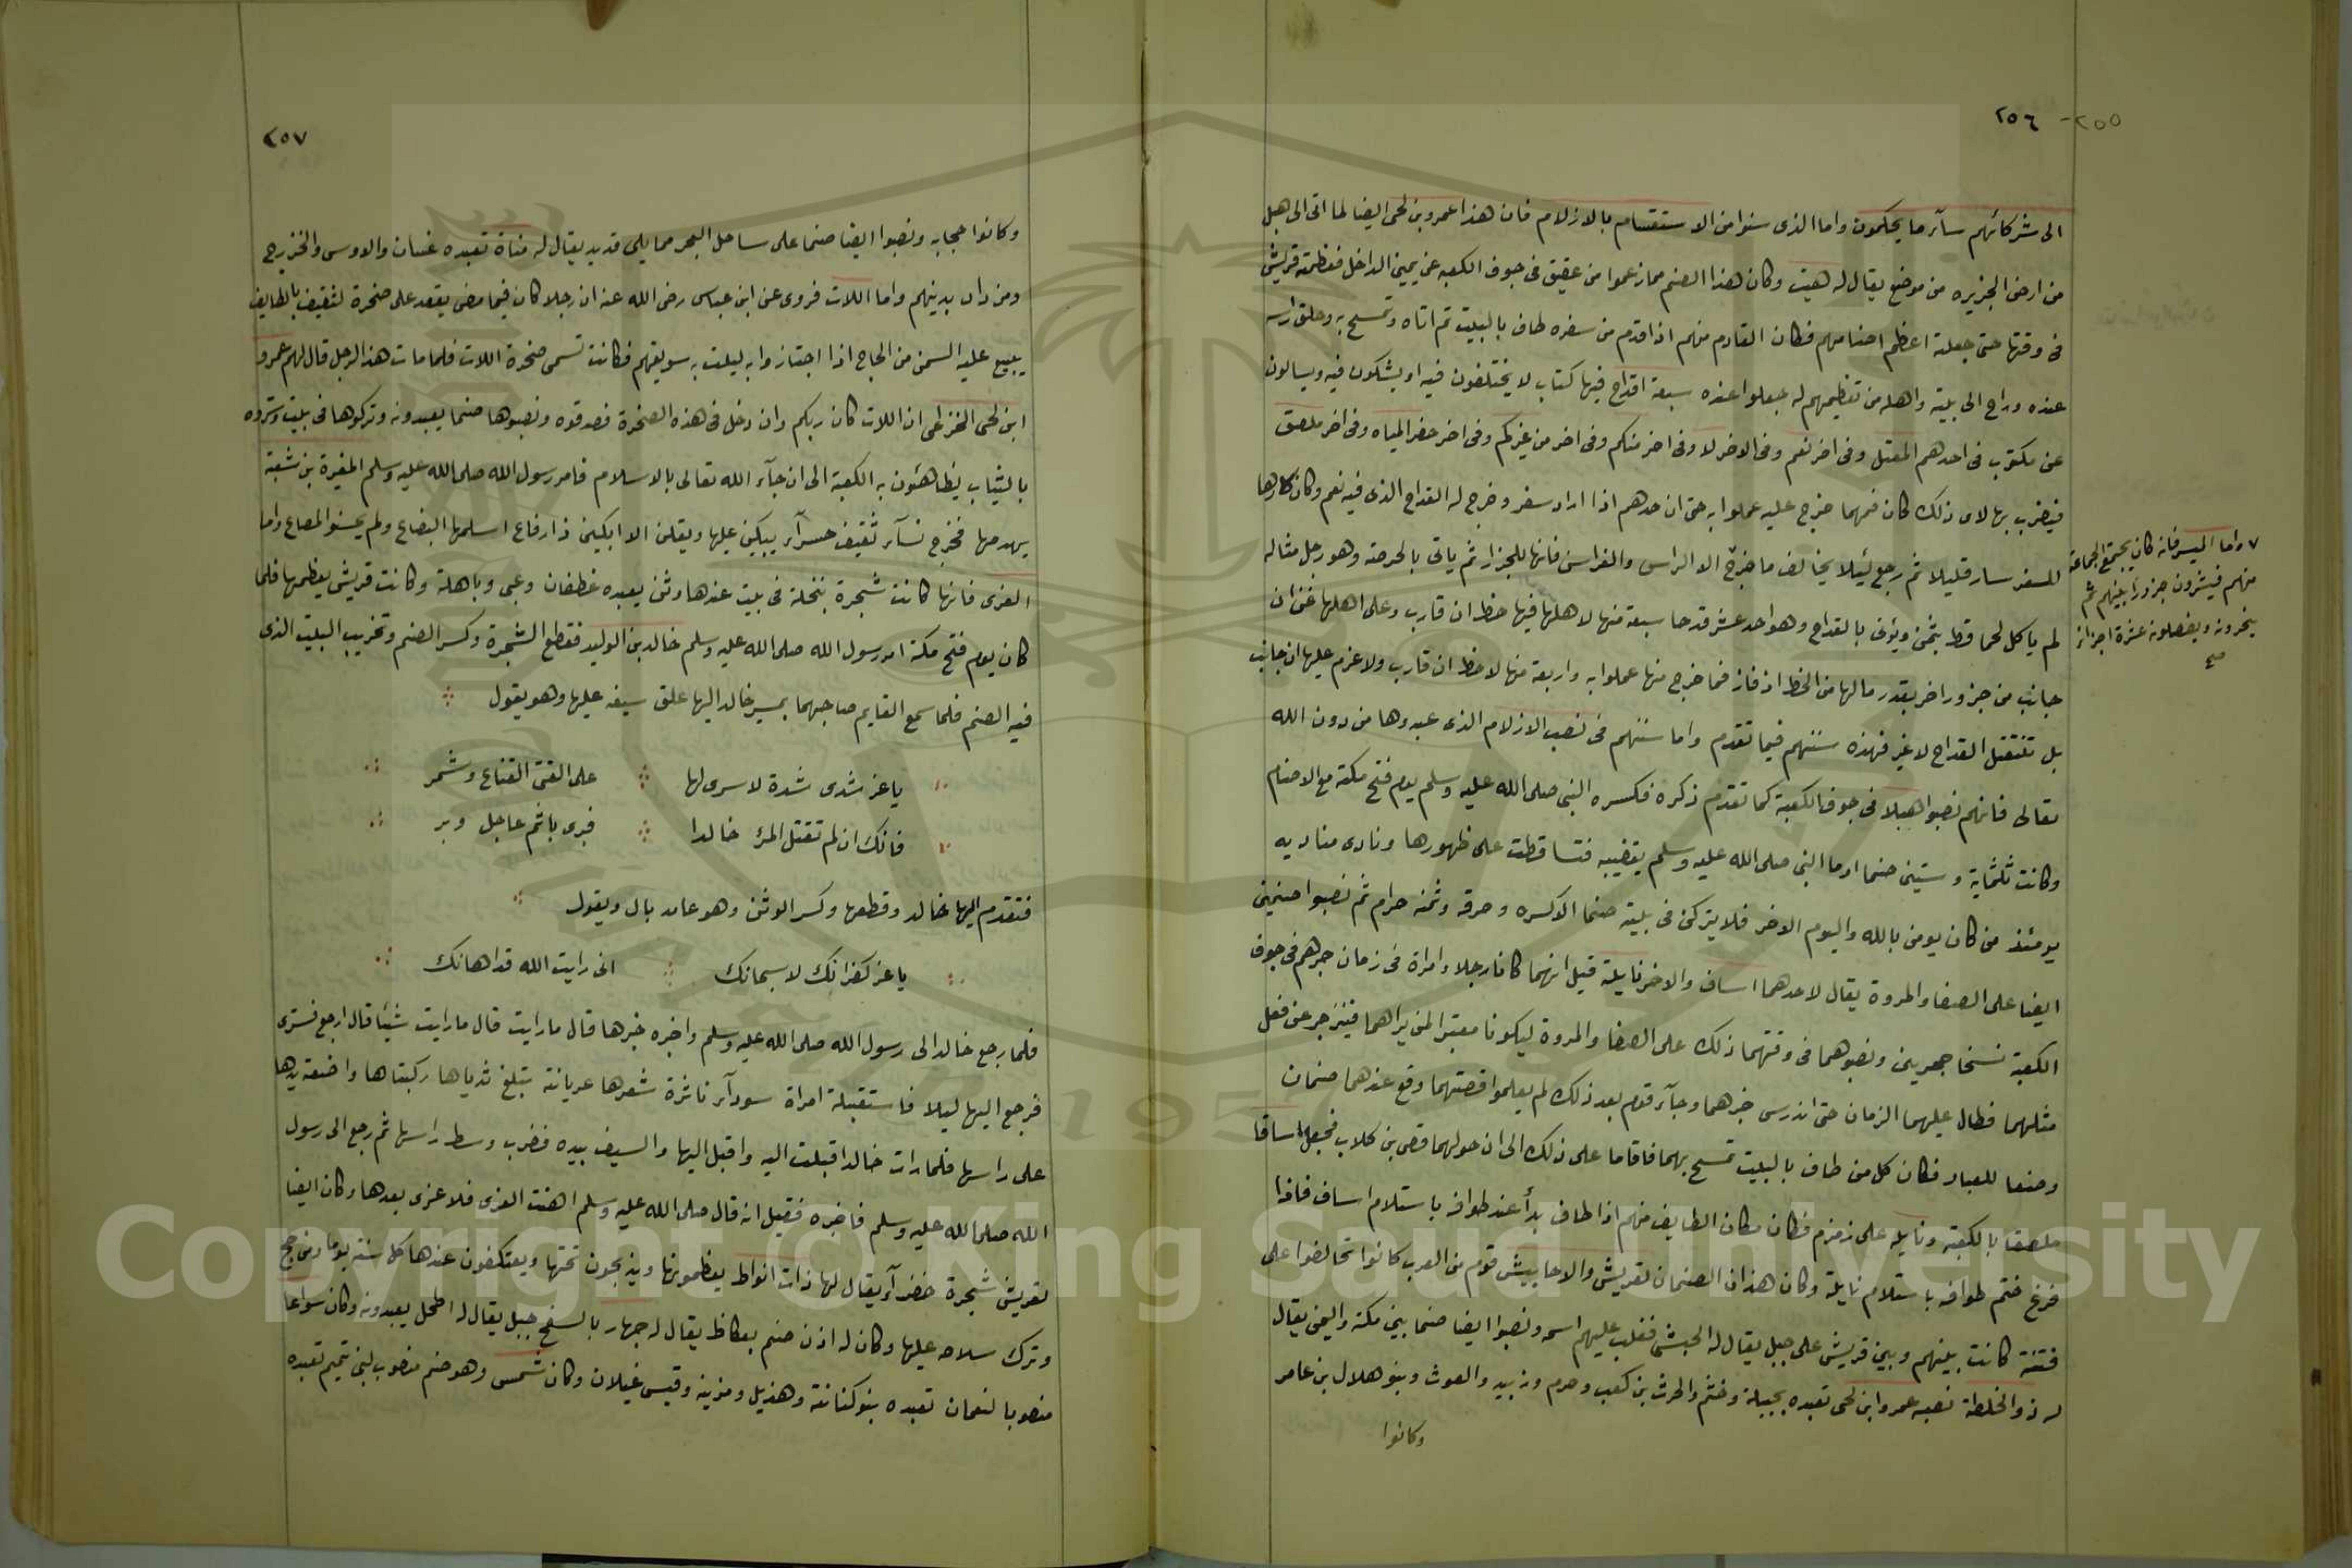 ٢٥٥-
٢٥٦
الى شركائهم سآء ما يحكمون واما الذى سنوا من الاستقسام بالازلام فان هذا عمرو بن لحى ايضا لما اتى الى هبل
من ارض الجزيره من موضع يقال له هيت وكان هذا الصنم مما زعموا من عقيق فى جوف الكعبه عن يمين الداخل فعظمته قريش
فى وقتها حتى جعلته اعظم اصنامهم فكان القادم منهم اذا قدم من سفره طاف بالبيت ثم اتاه وتمسح به وحلق راسه
عنده وراح الى بيته واهله من تعظيمهم له جعلوا عنده سبعة اقداح فيها كتاب لا يختلفون فيه او يشكون فيه ويسالون
عن مكتوب فى احدهم المعقل وفى اخر نعم وفى الاخر لا وفى اخر منكم وفى اخر من غيركم وفى اخر حفر المياه وفى اخر ملصق
فيضرب بها لاى ذلك كان فمهما خرج عليه عملوا به حتى ان احدهم اذا اراد سفر وخرج له القداح الذى فيه نعم وكان كارها
للسفر سار قليلا ثم رجع لئيلا يخالف ما خرج الا الراس والفراسن فانها للجزار ثم ياتى بالحرضة وهو رجل مثاله
لم ياكل لحما قط بثمن ويؤتى بالقداح وهو احد عشر قدحا سبعة منها لاهلها فيها حظ ان قارب وعلى اهلها غرم ان
جانب من جزور اخر بقدر مالها من الحظ اذ فاز فما خرج منها عملوا به واربعة منها لاحظ ان قارب ولا غرم عليها ان جانب
بل تنتقل القداح لا غير فهذه سننهم فيما تقدم واما سننهم فى نصب الازلام الذى عبدوها من دون الله
تعالى فانهم نصبوا هبلا فى جوف الكعبة كما تقدم ذكره فكسره النبى صلى الله عليه وسلم يوم فتح مكة مع الاصنام
وكانت ثلثماية وستين صنما اوما النبى صلى الله عليه وسلم بقضيبه فتساقطت على ظهورها ونادى مناديه
يومئذ من كان يومن بالله واليوم الاخر فلا يتركن فى بيته صنما الا كسره وحرقه وثمنه حرام ثم نصبوا صنمين
ايضا على الصفا والمروة يقال لاحدهما اساف والاخر نايلة قيل انهما كانا رجلا وامراة فى زمان جرهم فى جوف
الكعبة نسخا حجرين ونصبوهما فى وقتهما ذلك على الصفا والمروة ليكونا معتبرا لمن يراهما فينزجر عن فعل
مثلهما فطال عليهما الزمان حتى اندرس خبرهما وجآء قوم بعد ذلك لم يعلموا قصتهما وقع عندهما صنمان
وضعا للعباد فكان كل من طاف بالبيت تمسح بهما فاقاما على ذلك الى ان حولهما قصى بن كلاب فجعل اسافا
ملصقا بالكعبة ونايله على زمزم فكان مكان الطايف منهم اذا طاف بدأ عند طوافه باستلام اساف فاذا
فرغ ختم طوافه باستلام نايلة وكان هذان الصنمان لقريش والاحابيش قوم من العرب كانوا تحالفوا على
فتنة كانت بينهم وبين قريش على جبل يقال له الحبشى فغلب عليهم اسمه ونصبوا ايضا صنما بين مكة واليمن يقال
له ذو الخلصة نصبه عمرو ابن لحى تعبده بجيلة وخثم والحرث بن كعب وجرم وزبيد والغوث وبنو هلال بن عامر
وكانوا
٧ واما الميسر فانه كان يجتمع الجماعة
منهم فيشترون جزورا بينهم ثم
ينحرونه ويفصلونه عشرة اجزاء
صح
٢٥٧
وكانوا حجابه ونصبوا ايضا صنما على ساحل البحر مما يلى قديد يقال له مناة تعبده غسان والاوس والخزرج
ومن دان بدينهم واما اللات فروى عن ابن عباس رضى الله عنه ان رجلا كان فيما مضى يقعد على صخرة لثقيف بالطايف
يبيع عليه السمن من الحاج اذا اجتازوا به ليلت به سويقهم فكانت تسمى صخرة اللات فلما مات هذا الرجل قال لهم عمرو
ابن لحى الخزاعى ان اللات كان ربكم وان دخل فى هذه الصخرة فصدقوه ونصبوها صنما يعبدونه وتركوها فى بيت وستروه
بالثياب يضاهئون به الكعبة الى ان جآء الله تعالى بالاسلام فامر رسول الله صلى الله عليه وسلم المغيرة بن شعبة
بهدمها فخرج نسآء ثقيف حسرآء يبكين عليها ويقلن الا ابكين ذا رفاع اسلمها الرضاع ولم يحسنوا المصاع واما
العزى فانها كانت شجرة بنخلة فى بيت عندها وثن يعبده غطفان وغنى وباهلة وكانت قريش يعظمها فلما
كان يوم فتح مكة امر رسول الله صلى الله عليه وسلم خالد بن الوليد فقطع الشجرة وكسر الصنم وتخريب البيت الذى
فيه الصنم فلما سمع القايم صاحبهما بمسير خالد اليها علق سيفه عليها وهو يقول
يا عز شدى شدة لا سوى لها على القى القناع وشمر
فانك ان لم تقتل المرء خالدا فبرى باثم عاجل وبر
فتقدم اليها خالد وقطعها وكسر الوثن وهو عامد بال ويقول
يا عز كفرانك لا سبحانك انى رايت الله قد اهانك
فلما رجع خالد الى رسول الله صلى الله عليه وسلم واخبره خبرها قال ما رايت قال ما رايت شيئا قال ارجع فسترى
فرجع اليها ليلا فاستقبلته امراة سودآء ناشرة شعرها عريانة تبلغ ثدياها ركبتاها واضعة يدها
على راسها فلما رات خالدا قبلت اليه واقبل اليها والسيف بيده فضرب وسط راسها ثم رجع الى رسول
الله صلى الله عليه وسلم فاخبره فقيل انه قال صلى الله عليه وسلم اهنت العزى فلا عزى بعدها وكان ايضا
لقريش شجرة خضرآء يقال لها ذات انواط يعظمونها ويذبحون تحتها ويعتكفون عندها كل سنة يوما ومن حج
وترك سلاحه عليها وكان له اذن صنم بعكاظ يقال له جهار بالسفح جبل يقال له اطحل يعبدونه وكان سواعا
منصوبا لنعمان تعبده بنو كنانة وهذيل ومزينه وقيس غيلان وكان شمس وهو صنم منصوب لبنى تميم تعبده
Copyright © King Saud University
1957